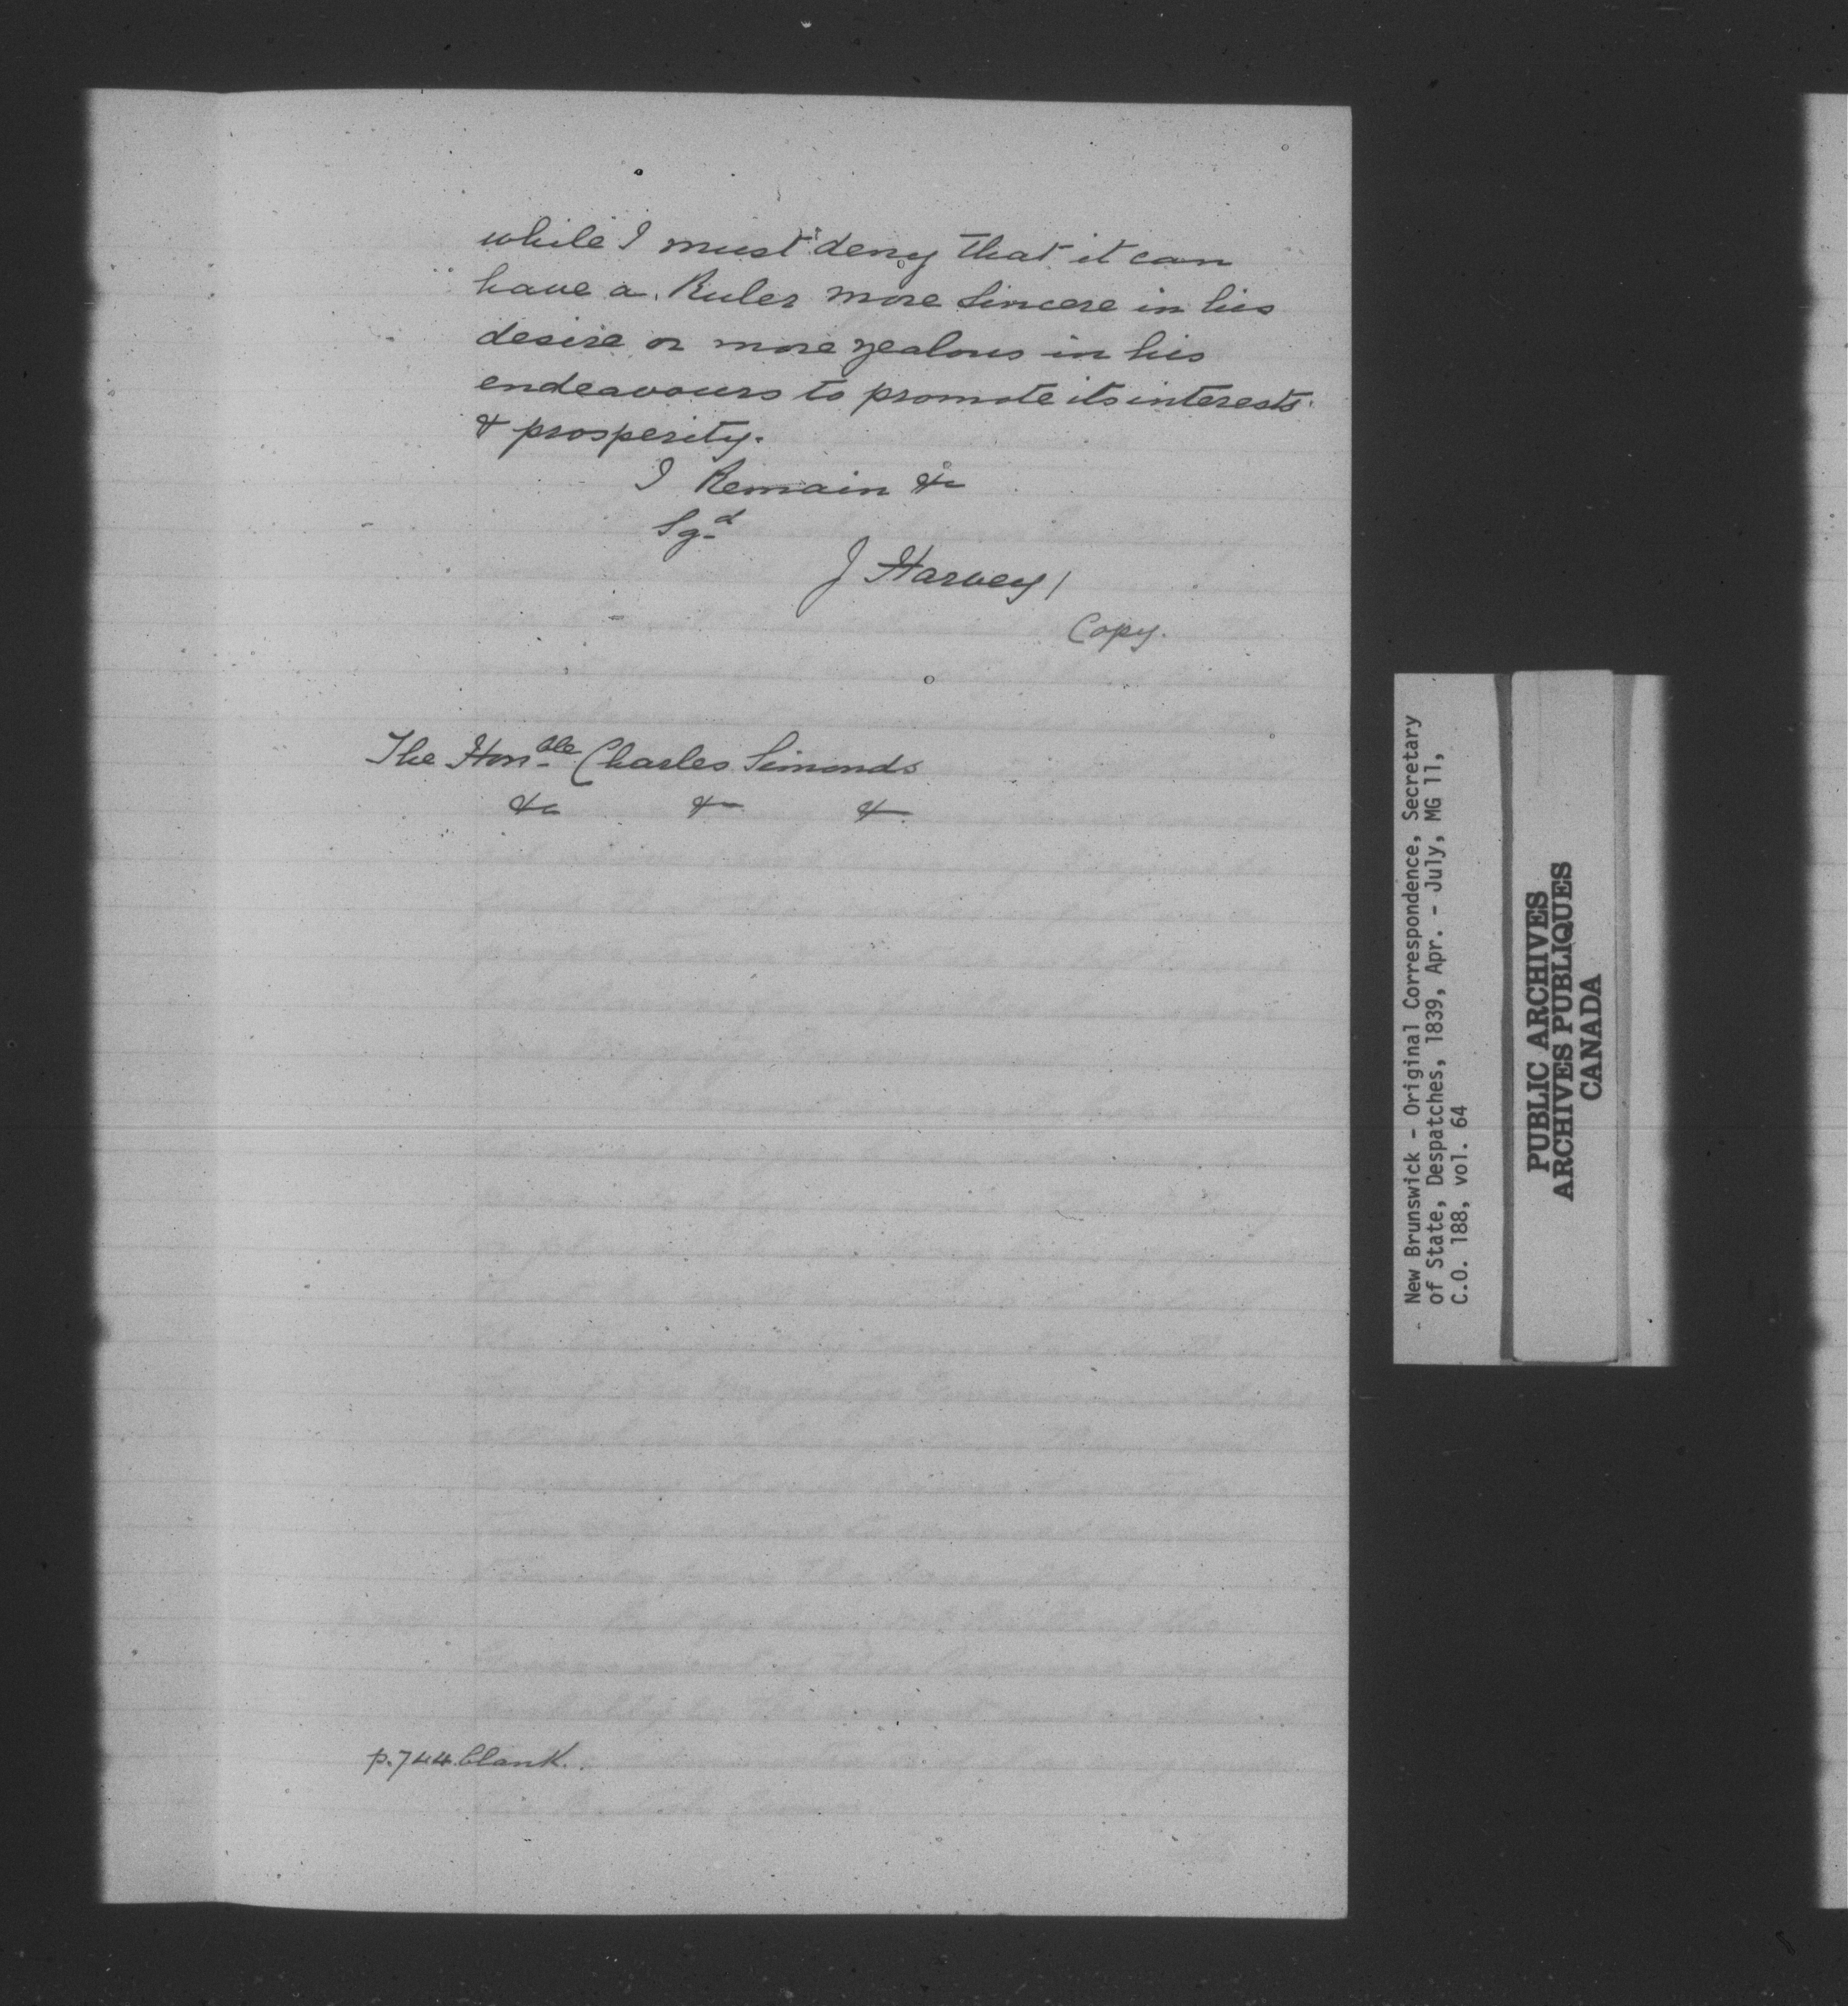 while I must deny that it can
have a Ruler more sincere in his
desire or more zealous in his
endeavours to promote its interests
& prosperity.
I Remain &c
Sgd
J Harvey /
Copy.
The Honble Charles Simonds
&c &c &c
p. 744 blank.
New Brunswick - Original Correspondence, Secretary
of State, Despatches, 1839, Apr. - July, MG 11,
C.O. 188, vol. 64
PUBLIC ARCHIVES
ARCHIVES PUBLIQUES
CANADA